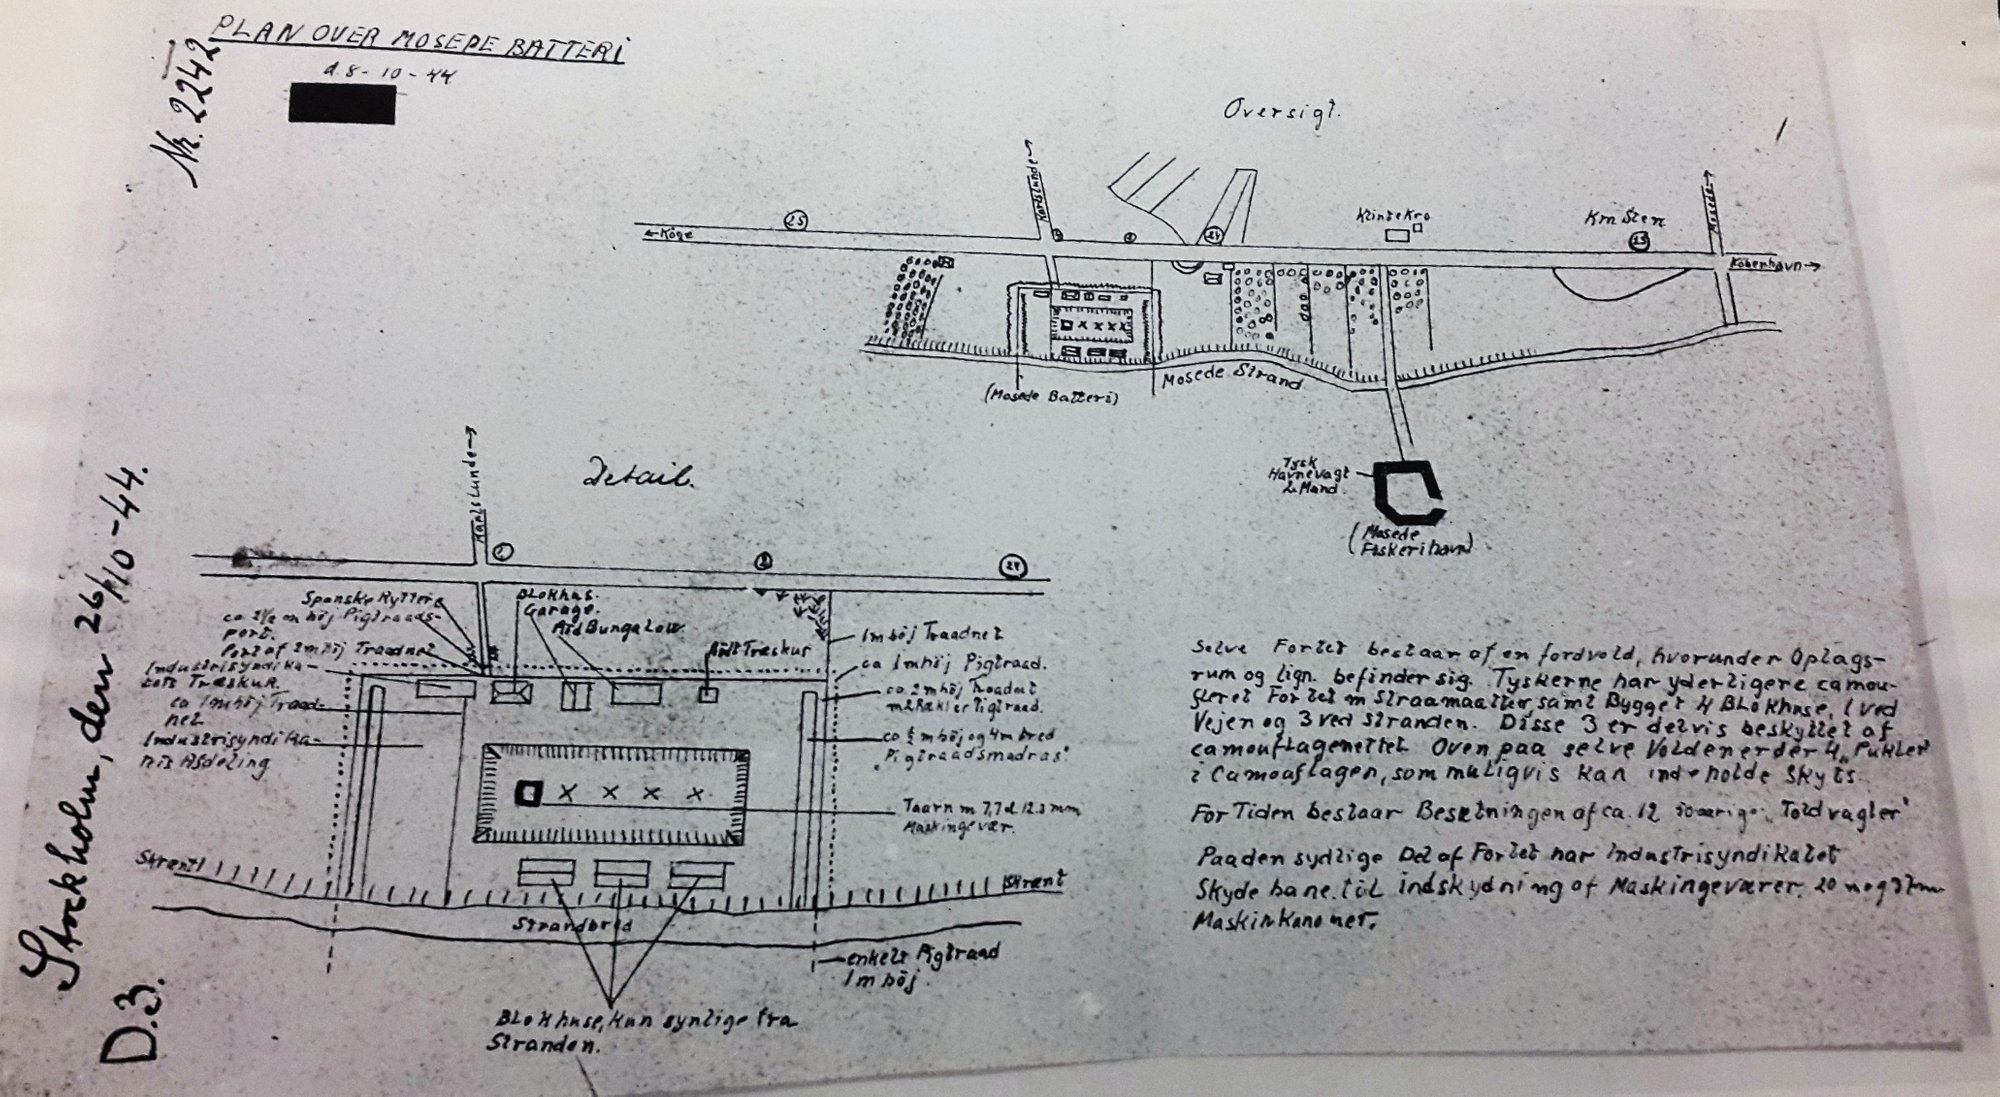 PLAN OVER MOSEDE BATTERI
d. 8-10-44
Nr. 2242
Stockholm, den 26/10-44.
D.3.
Oversigt.
Karlslunde
Klintekro
Km Sten
Mosede
25
24
23
Köge
Köbenhavn
Mosede Strand
(Mosede Batteri)
Tysk
Havnevagt
2 Mand.
(Mosede
Fiskerihavn)
Detail.
Karlslunde
24
Spanske Ryttere
ca 2½ m höj Pigtraads-
port.
Port af 2 m höj Traadnet
Industrisyndika-
tets Træskur.
ca 1 m höj Traad-
net
Industrisyndika-
Afdeling
Blokhus.
Garage.
Ard Bungalow
Træskur
1 m höj Traadnet
ca 1 m höj Pigtraad.
ca 2 m höj Traadnet
m 2 Rækker Pigtraad.
ca ½ m höj og 4 m bred
"Pigtraadsmadras"
Taarn m 7,7 el 12.3 mm
Maskingevær.
Skrænt
Skrænt
Strandbred
enkelt Pigtraad
1 m höj.
Blokhuse, kun synlige fra
Stranden.
Selve Fortet bestaar af en Jordvold, hvorunder Oplags-
rum og lign. befinder sig. Tyskerne har yderligere camou-
fleret Fortet m Straamaatter, samt Bygget 4 Blokhuse, 1 ved
Vejen og 3 ved Stranden. Disse 3 er delvis beskyttet af
camouflagenettet. Oven paa selve Volden er der 4 "Pukler"
i Camouflagen, som muligvis kan indeholde Skyts.
For Tiden bestaar Besætningen af ca. 12 50 aarige "Toldvagter"
Paa den sydlige Del af Fortet har Industrisyndikatet
Skydebane til indskydning af Maskingeværer, 20 og 37 mm
Maskinkanoner.